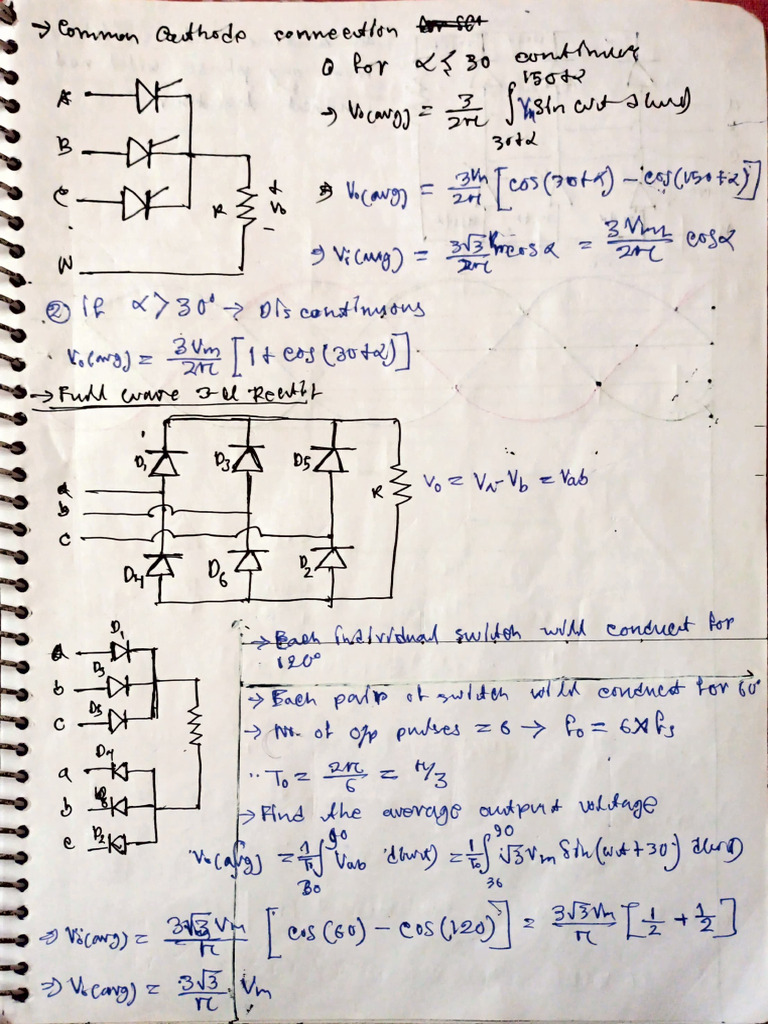 → Common Cathode connection
① for α ≤ 30 continuous
A
B
C
N
R
+
V₀
-
→ V₀(avg) = 3/2π ∫_{30+α}^{150+α} Vm Sin ωt d(ωt)
⇒ V₀(avg) = 3Vm/2π [cos(30+α) - cos(150+α)]
⇒ V₀(avg) = 3√3/2π Vm cosα = 3Vml/2π cosα
② if α > 30° → Discontinuous
V₀(avg) = 3Vm/2π [1 + cos(30+α)]
→ Full wave 3-Φ Rectif
D₁ D3 D5
a
b
c
R
V₀ = Va - Vb = Vab
D4 D6 2
a D1
b D3
c D5
a D4
b D6
c D2
→ Each individual switch will conduct for
120°
→ Each pair of switch will conduct for 60°
→ No. of o/p pulses = 6 → f₀ = 6 × fs
∴ T₀ = 2π/6 = π/3
→ Find the average output voltage
V₀(avg) = 1/T₀ ∫_{30}^{90} Vab d(ωt) = 1/T₀ ∫_{30}^{90} √3 Vm Sin(ωt + 30) d(ωt)
⇒ V₀(avg) = 3√3 Vm/π [cos(60) - cos(120)] = 3√3 Vm/π [1/2 + 1/2]
⇒ V₀(avg) = 3√3/π Vm